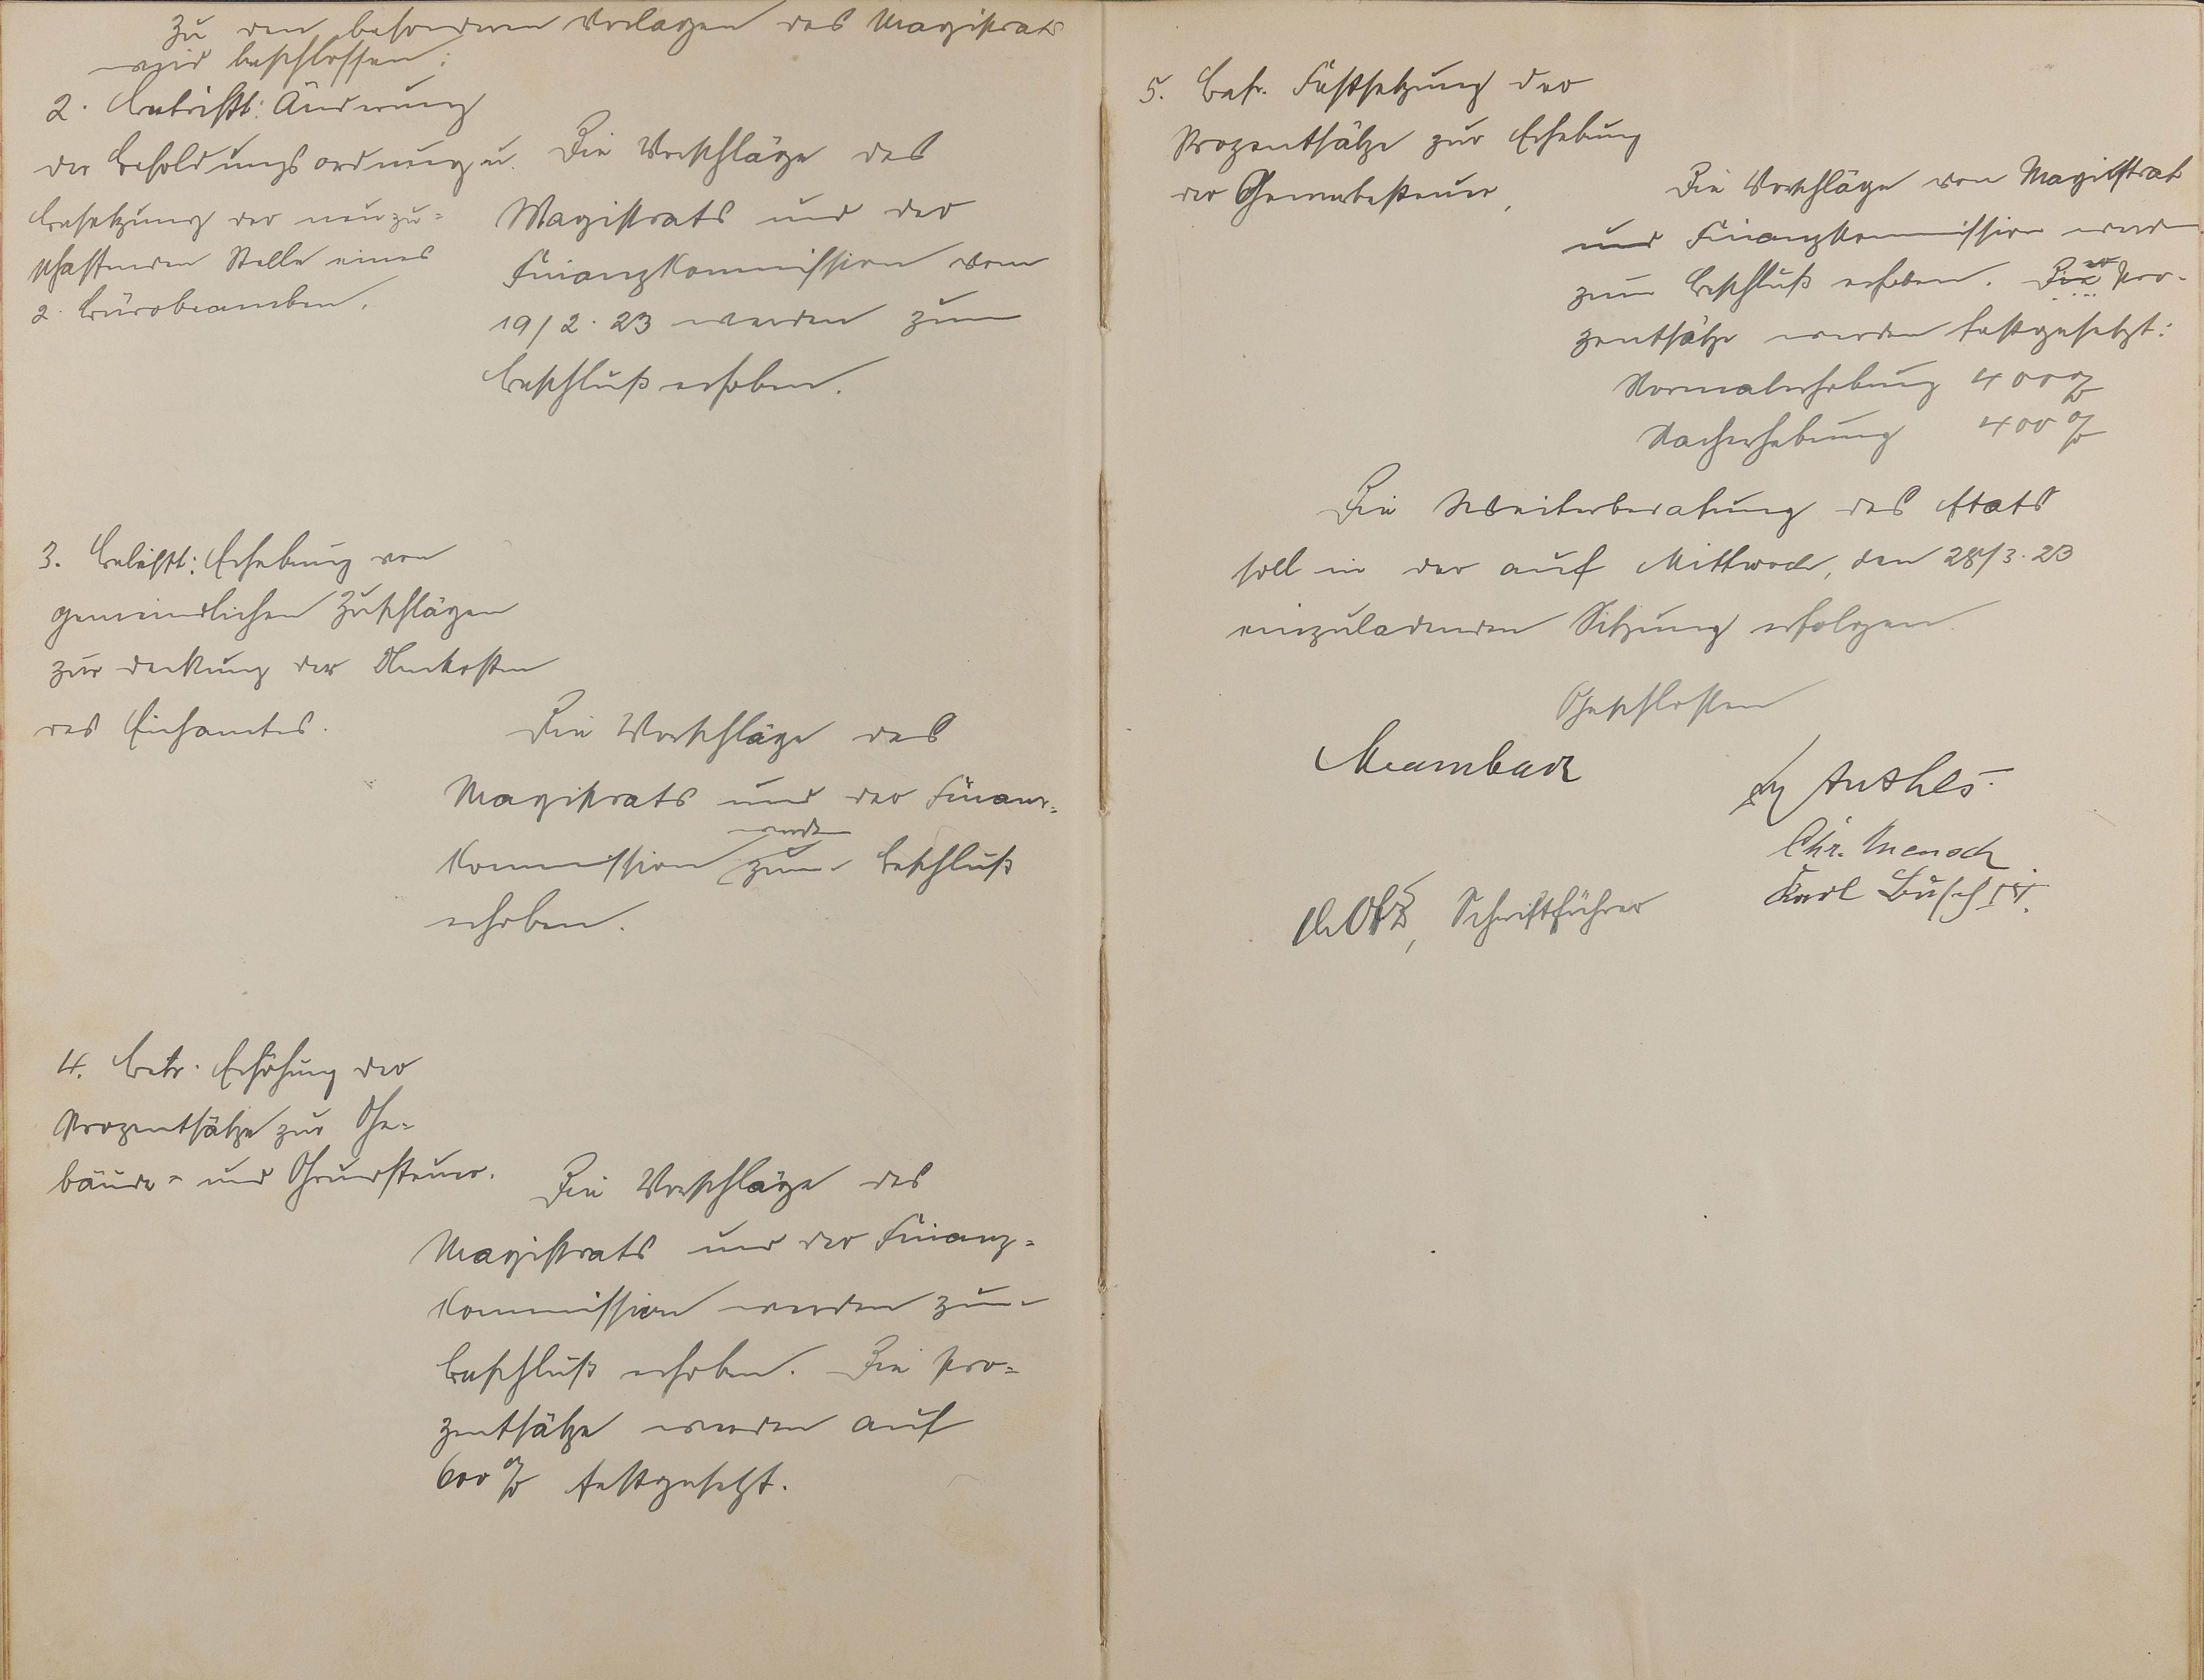 zu den besonderen Vorlagen des Magistrats
wird beschlossen:
2. Betrifft: Änderung
der Besoldungsordnung u.
Besetzung der neu zu=
schaffenden Stelle eines
2. Bürobeamten.
Die Vorschläge des
Magistrats und der
Finanzkommission vom
19/2. 23 werden zum
Beschluß erhoben.
3. Betrifft: Erhebung von
gemeindlichen Zuschlägen
zur Deckung der Unkosten
des Eichamtes.
Die Vorschläge des
Magistrats und der Finanz=
kommission werden zum Beschluß
erhoben.
4. Betr. Erhöhung der
Prozentsätze zur Ge=
bäude= und Grundsteuer.
Die Vorschläge des
Magistrats und der Finanz=
kommission werden zum
Beschluß erhoben. Die Pro=
zentsätze werden auf
600 % festgesetzt.
5. Betr. Festsetzung der
Prozentsätze zur Erhebung
der Gewerbesteuer.
Die Vorschläge von Magistrat
und Finanzkommission werden
zum Beschluß erhoben. Die Pro-
zentsätze werden festgesetzt:
Normalerhebung 400 %
Nacherhebung 400 %
Die Weiterberatung des Etats
soll in der auf Mittwoch, den 28/3. 23
einzuladenden Sitzung erfolgen
Geschlossen
Anthes.
Chr. Mensch
Karl Busch IV.
Schriftführer